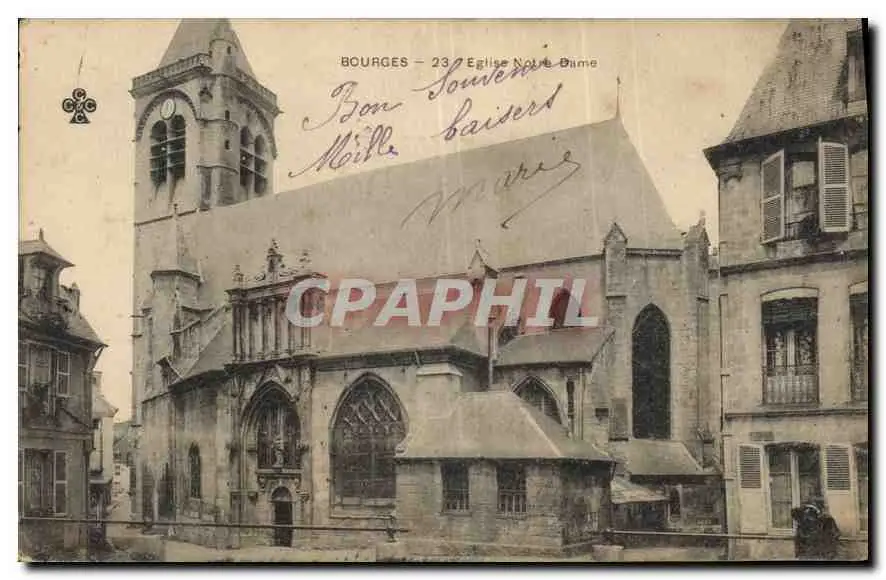 BOURGES - 23 Eglise Notre Dame
Bon Souvenir
Mille baisers
Marie
CPARAMA
CCCC